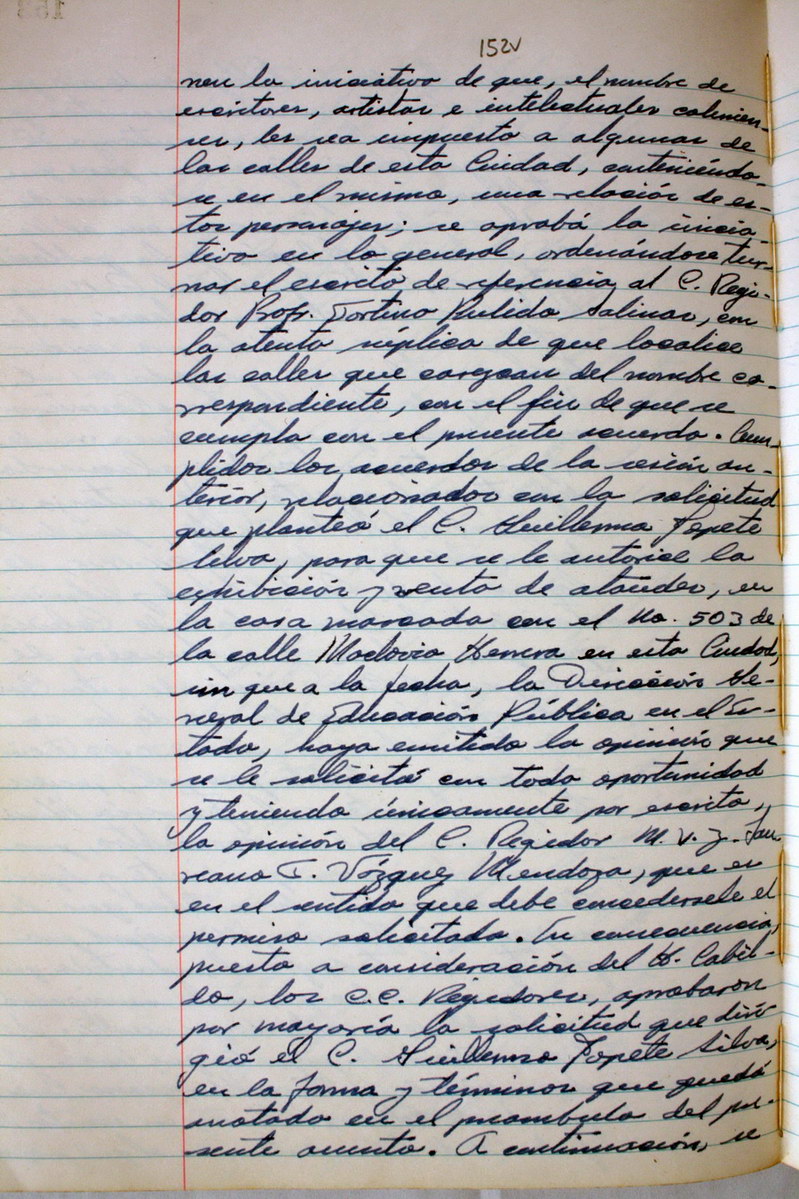 152v
nen la iniciativa de que, el nombre de
escritores, artistas e intelectuales colimen-
ses, les sea impuesto a algunas de
las calles de esta Ciudad, conteniéndo-
se en el mismo, una relación de es-
tos personajes; se aprobó la inicia-
tiva en lo general, ordenándose tur-
nar el escrito de referencia al C. Regi-
dor Profr. Tortino Pulido Salinas, con
la atenta súplica de que localice
las calles que carezcan del nombre co-
rrespondiente, con el fin de que se
cumpla con el presente acuerdo. Cum-
plidos los acuerdos de la sesión an-
terior, relacionados con la solicitud
que planteó el C. Guillermo Topete
Silva, para que se le autorice la
exhibición y venta de ataúdes, en
la casa marcada con el No. 503 de
la calle Maclovio Herrera en esta Ciudad,
sin que a la fecha, la Dirección Ge-
neral de Educación Pública en el Es-
tado, haya emitido la opinión que
se le solicitó con toda oportunidad
y teniendo únicamente por escrito,
la opinión del C. Regidor M. V. Z. Lau
reano T. Vázquez Mendoza, que es
en el sentido que debe concedersele el
permiso solicitado. En consecuencia,
puesto a consideración del H. Cabil-
do, los C.C. Regidores, aprobaron
por mayoría la solicitud que diri-
gió el C. Guillermo Topete Silva,
en la forma y términos que quedó
anotado en el preambulo del pre-
sente asunto. A continuación, se